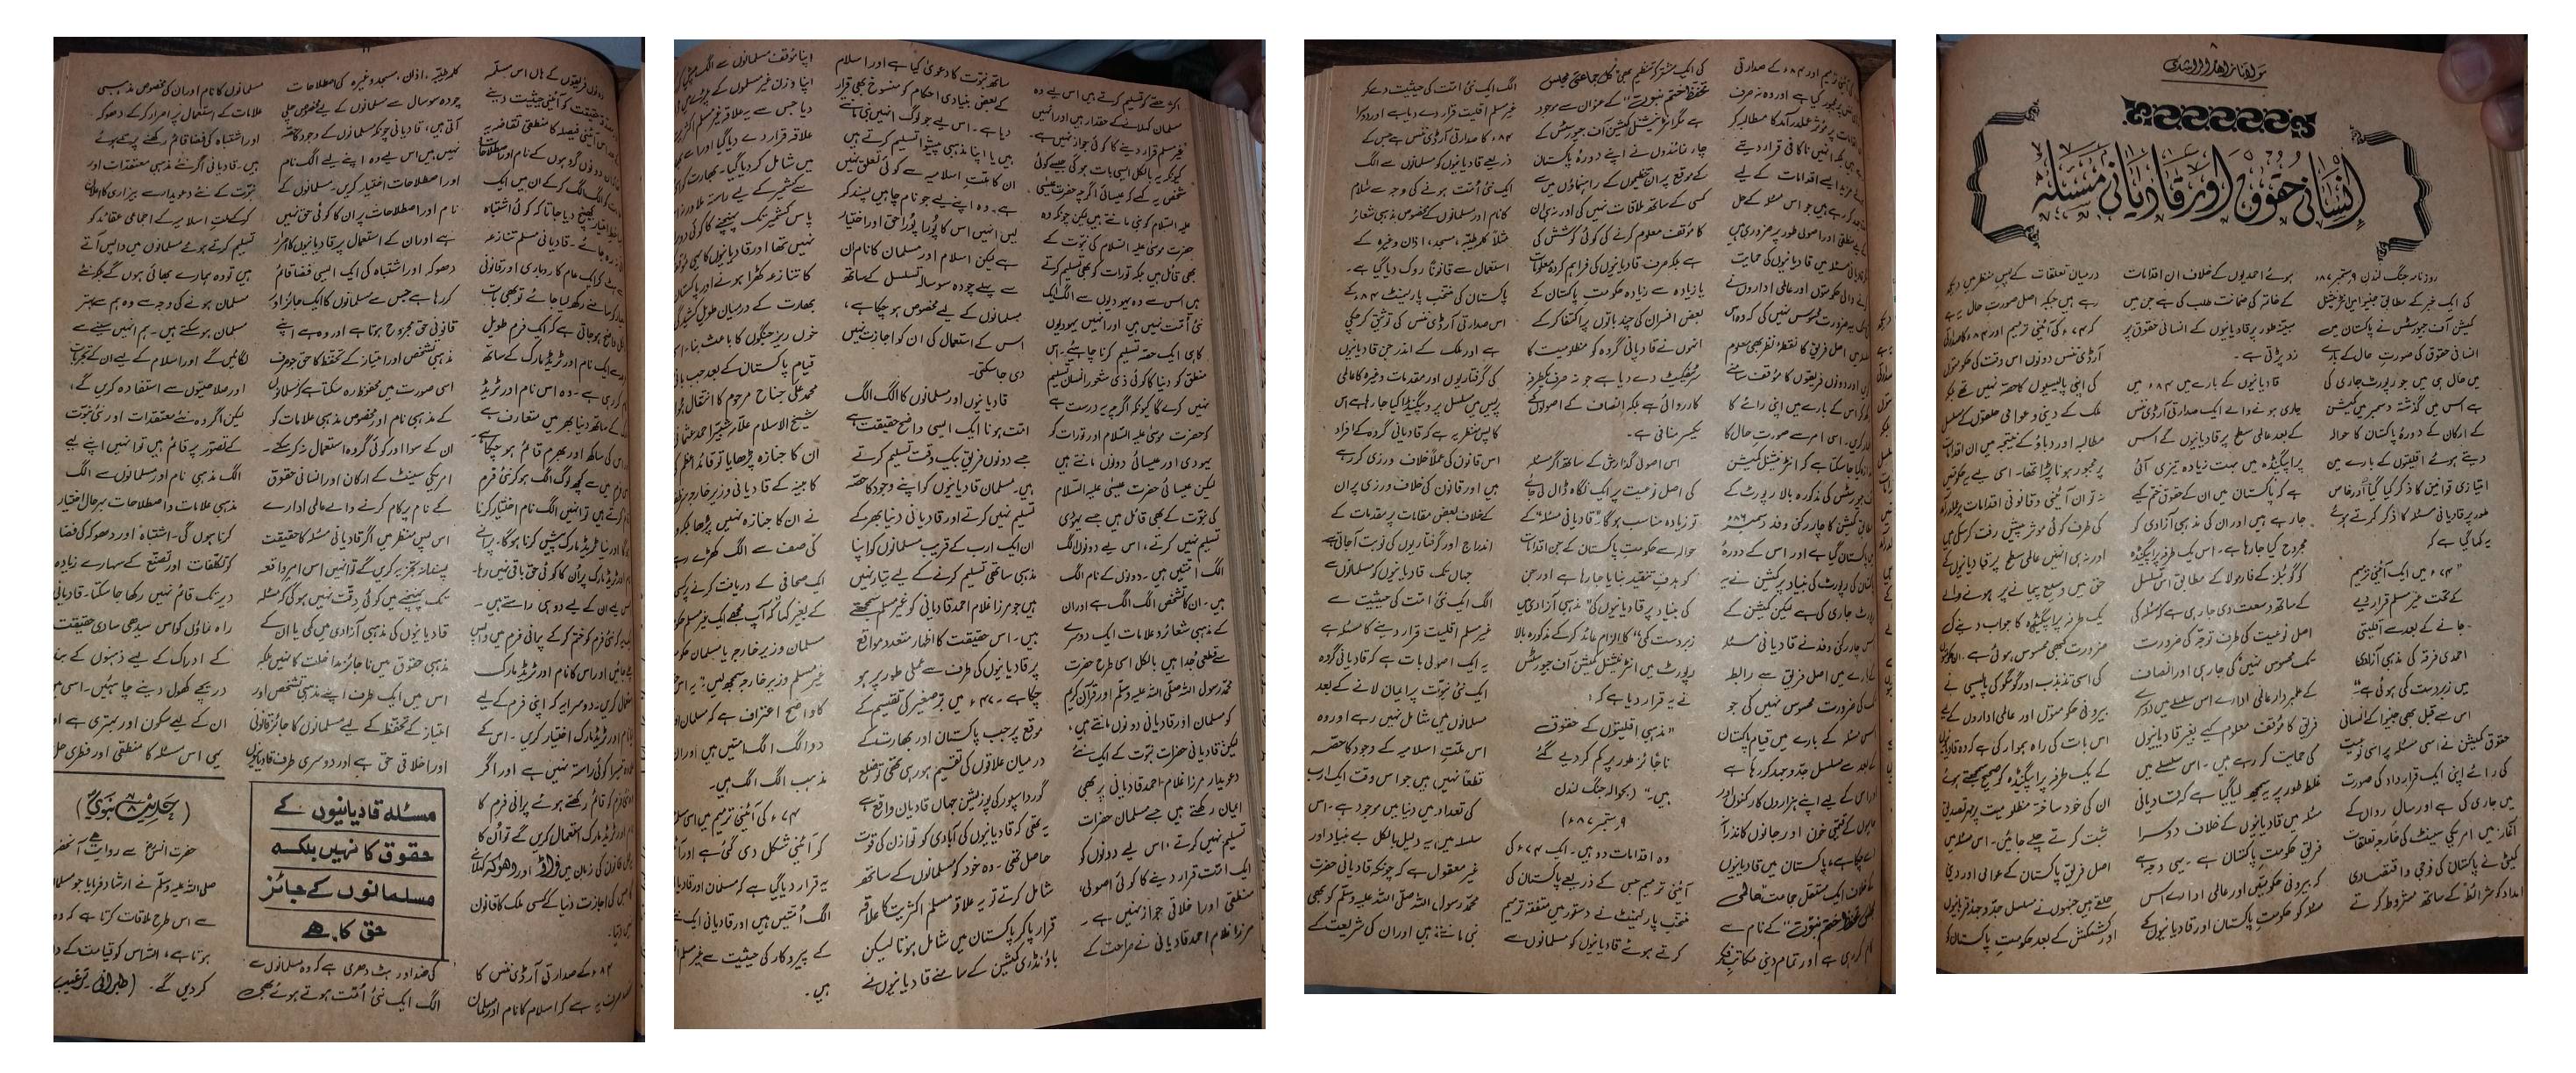 مولانا زاہد الراشدی
انسانی حقوق اور قادیانی مسئلہ
روزنامہ جنگ لندن ۹ ستمبر ۸۷ء
کی ایک خبر کے مطابق جنیوا میں انٹرنیشنل
کمیشن آف جیورسٹس نے پاکستان میں
انسانی حقوق کی صورت حال کے بارے
میں حال ہی میں جو رپورٹ جاری کی
ہے اس میں گذشتہ دسمبر میں کمیشن
کے ارکان کے دورۂ پاکستان کا حوالہ
دیتے ہوئے اقلیتوں کے بارے میں
امتیازی قوانین کا ذکر کیا گیا اور خاص
طور پر قادیانی مسئلہ کا ذکر کرتے ہوئے
یہ کہا گیا ہے کہ
"۷۴ء میں ایک آئینی ترمیم
کے تحت غیر مسلم قرار دیے
جانے کے بعد سے اقلیتی
احمدی فرقہ کی مذہبی آزادی
میں زبردست کمی ہوئی ہے"
اس سے قبل بھی جنیوا کے انسانی
حقوق کمیشن نے اسی مسئلہ پر اسی نوعیت
کی رائے اپنی ایک قرارداد کی صورت
میں جاری کی ہے اور سال رواں کے
آغاز میں امریکی سینٹ کی خارجہ تعلقات
کمیٹی نے پاکستان کی فوجی و اقتصادی
امداد کو شرائط کے ساتھ مشروط کرتے
ہوئے احمدیوں کے خلاف ان اقدامات
کے خاتمہ کی ضمانت طلب کی ہے جن میں
مبینہ طور پر قادیانیوں کے انسانی حقوق پر
زد پڑتی ہے۔
قادیانیوں کے بارے میں ۸۴ء میں
جاری ہونے والے ایک صدارتی آرڈی ننس
کے بعد عالمی سطح پر قادیانیوں کے اس
پراپیگنڈہ میں بہت زیادہ تیزی آئی
ہے کہ پاکستان میں ان کے حقوق ختم کیے
جا رہے ہیں اور ان کی مذہبی آزادی کو
مجروح کیا جا رہا ہے۔ اس یک طرفہ پراپیگنڈہ
کو گوئبلز کے فارمولا کے مطابق اس تسلسل
کے ساتھ وسعت دی جا رہی ہے کہ مسئلہ کی
اصل نوعیت کی طرف توجہ کی ضرورت
تک محسوس نہیں کی جا رہی اور انصاف
کے علمبردار عالمی ادارے اس سلسلے میں دوسرے
فریق کا مؤقف معلوم کیے بغیر قادیانیوں
کی حمایت کر رہے ہیں۔ اس سلسلے میں
غلط طور پر یہ سمجھ لیا گیا ہے کہ قادیانی
مسئلہ میں قادیانیوں کے خلاف دوسرا
فریق حکومتِ پاکستان ہے۔ یہی وجہ ہے
کہ بیرونی حکومتیں اور عالمی ادارے اس
مسئلہ کو حکومتِ پاکستان اور قادیانیوں کے
درمیان تعلقات کے پس منظر میں دیکھ
رہے ہیں جبکہ اصل صورتِ حال یہ ہے
کہ ۷۴ء کی آئینی ترمیم اور ۸۴ء کا صدارتی
آرڈی ننس دونوں اس وقت کی حکومتوں
کی اپنی پالیسیوں کا حصہ نہیں تھے بلکہ
ملک کے دینی و عوامی حلقوں کے مسلسل
مطالبہ اور دباؤ کے نتیجہ میں ان اقدامات
پر مجبور ہونا پڑا تھا۔ اسی لیے یہ حکومتیں
نہ تو ان آئینی و قانونی اقدامات پر عملدرآمد
کی طرف کوئی مؤثر پیش رفت کر سکی ہیں
اور نہ ہی انہیں عالمی سطح پر قادیانیوں کے
حق میں وسیع پیمانے پر ہونے والے
یک طرفہ پراپیگنڈہ کا جواب دینے کی
ضرورت کبھی محسوس ہوئی ہے۔ ان حکومتوں
کی اسی تذبذب اور گومگو کی پالیسی نے
بیرونی حکومتوں اور عالمی اداروں کے لیے
اس بات کی راہ ہموار کی ہے کہ وہ قادیانیوں
کے یک طرفہ پراپیگنڈہ کو صحیح سمجھتے ہوئے
ان کی خود ساختہ مظلومیت پر مہر تصدیق
ثبت کرتے چلے جائیں۔ اس مسئلہ میں
اصل فریق پاکستان کے عوامی اور دینی
حلقے ہیں جنہوں نے مسلسل جدوجہد قربانیوں
اور کشمکش کے بعد حکومتِ پاکستان کو
آئینی ترمیم اور ۸۴ء کے صدارتی
پر مجبور کیا ہے اور وہ نہ صرف
پر مؤثر عملدرآمد کا مطالبہ کر
بلکہ انہیں ناکافی قرار دیتے
مزید ایسے اقدامات کے لیے
کر رہے ہیں جو اس مسئلہ کے حل
منطقی اور اصولی طور پر ضروری ہیں
مسئلہ میں قادیانیوں کی حمایت
والی حکومتوں اور عالمی اداروں نے
یہ ضرورت محسوس نہیں کی کہ وہ اس
میں اصل فریق کا نقطۂ نظر بھی معلوم
اور دونوں فریقوں کا مؤقف سامنے
اس کے بارے میں اپنی رائے کا
کریں۔ اسی امر سے صورت حال کا
کیا جا سکتا ہے کہ انٹرنیشنل کمیشن
جیورسٹس کی مذکورہ بالا رپورٹ کے
کمیشن کا چار رکنی وفد دسمبر ۸۶ء
پاکستان گیا ہے اور اس کے دورۂ
پاکستان کی رپورٹ کی بنیاد پر کمیشن نے یہ
رپورٹ جاری کی ہے لیکن کمیشن کے
اس چار رکنی وفد نے قادیانی مسئلہ
کے بارے میں اصل فریق سے رابطہ
کی ضرورت محسوس نہیں کی جو
اس مسئلہ کے بارے میں قیام پاکستان
کے بعد سے مسلسل جدوجہد کر رہا ہے
اور اس کے لیے اپنے ہزاروں کارکنوں اور
کے قیمتی خون اور جانوں کا نذرانہ
دے چکا ہے۔ پاکستان میں قادیانیوں
کے خلاف ایک مستقل جماعت عالمی
مجلس تحفظ ختم نبوت" کے نام سے
کام کر رہی ہے اور تمام دینی مکاتبِ فکر
کی ایک مشترکہ تنظیم بھی "کل جماعتی مجلس
تحفظ ختم نبوت" کے عنوان سے موجود
ہے مگر انٹرنیشنل کمیشن آف جیورسٹس کے
چار نمائندوں نے اپنے دورۂ پاکستان
کے موقع پر ان تنظیموں کے راہنماؤں میں سے
کسی کے ساتھ ملاقات نہیں کی اور نہ ہی ان
کا مؤقف معلوم کرنے کی کوئی کوشش کی
ہے بلکہ صرف قادیانیوں کی فراہم کردہ معلومات
یا زیادہ سے زیادہ حکومتِ پاکستان کے
بعض افسران کی چند باتوں پر اکتفا کر کے
انہوں نے قادیانی گروہ کو مظلومیت کا
سرٹیفکیٹ دے دیا ہے جو نہ صرف یکطرفہ
کارروائی ہے بلکہ انصاف کے اصولوں کے
یکسر منافی ہے۔
اس اصولی گذارش کے ساتھ اگر مسئلہ
کی اصل نوعیت پر ایک نگاہ ڈال لی جائے
تو زیادہ مناسب ہوگا۔ "قادیانی مسئلہ" کے
حوالہ سے حکومتِ پاکستان کے جن اقدامات
کو ہدفِ تنقید بنایا جا رہا ہے اور جن
کی بنیاد پر قادیانیوں کی "مذہبی آزادی میں
زبردست کمی" کا الزام عائد کر کے مذکورہ بالا
رپورٹ میں انٹرنیشنل کمیشن آف جیورسٹس
نے یہ قرار دیا ہے کہ:
"مذہبی اقلیتوں کے حقوق
ناجائز طور پر کم کر دیے گئے
ہیں۔" (بحوالہ جنگ لندن
۹ ستمبر ۸۷ء)
وہ اقدامات دو ہیں۔ ایک ۷۴ء کی
آئینی ترمیم جس کے ذریعے پاکستان کی
منتخب پارلیمنٹ نے دستور میں متفقہ ترمیم
کرتے ہوئے قادیانیوں کو مسلمانوں سے
الگ ایک نئی امت کی حیثیت دے کر
غیر مسلم اقلیت قرار دے دیا ہے اور دوسرا
۸۴ء کا صدارتی آرڈی ننس ہے جس کے
ذریعے قادیانیوں کو مسلمانوں سے الگ
ایک نئی امت ہونے کی وجہ سے اسلام
کا نام اور مسلمانوں کے مخصوص مذہبی شعائر
مثلاً کلمہ طیبہ، مسجد، اذان وغیرہ کے
استعمال سے قانوناً روک دیا گیا ہے۔
پاکستان کی منتخب پارلیمنٹ ۸۵ء کے
اس صدارتی آرڈی ننس کی توثیق کر چکی
ہے اور ملک کے اندر جن قادیانیوں
کی گرفتاریوں اور مقدمات وغیرہ کا عالمی
پریس میں مسلسل پروپیگنڈا کیا جا رہا ہے اس
کا پس منظر یہ ہے کہ قادیانی گروہ کے افراد
اس قانون کی عملاً خلاف ورزی کر رہے
ہیں اور قانون کی خلاف ورزی پر ان
کے خلاف بعض مقامات پر مقدمات کے
اندراج اور گرفتاریوں کی نوبت آجاتی ہے
جہاں تک قادیانیوں کو مسلمانوں سے
الگ ایک نئی امت کی حیثیت سے
غیر مسلم اقلیت قرار دینے کا مسئلہ ہے
یہ ایک اصولی بات ہے کہ قادیانی گروہ
ایک نئی نبوت پر ایمان لانے کے بعد
مسلمانوں میں شامل نہیں رہے اور وہ
اس ملتِ اسلامیہ کے وجود کا حصہ
قطعاً نہیں ہیں جو اس وقت ایک ارب
کی تعداد میں دنیا میں موجود ہے۔ اس
سلسلہ میں یہ دلیل بالکل بے بنیاد اور
غیر معقول ہے کہ چونکہ قادیانی حضرت
محمد رسول اللہ صلی اللہ علیہ وسلم کو بھی
نبی مانتے ہیں اور ان کی شریعت کے
اکثر حصے کو تسلیم کرتے ہیں اس لیے وہ
مسلمان کہلانے کے حقدار ہیں اور انہیں
غیر مسلم قرار دینے کا کوئی جواز نہیں ہے۔
کیونکہ یہ بالکل ایسی بات ہوگی جیسے کوئی
شخص یہ کہے کہ عیسائی اگرچہ حضرت عیسیٰ
علیہ السلام کو نبی مانتے ہیں لیکن چونکہ وہ
حضرت موسیٰ علیہ السلام کی نبوت کے
بھی قائل ہیں بلکہ تورات کو بھی تسلیم کرتے
ہیں اس سے وہ یہودیوں سے الگ ایک
نئی امت نہیں ہیں اور انہیں یہودیوں
کا ہی ایک حصہ تسلیم کرنا چاہیے۔ اس
منطق کو دنیا کا کوئی ذی شعور انسان تسلیم
نہیں کرے گا کیونکہ اگرچہ یہ درست ہے
کہ حضرت موسیٰ علیہ السلام اور تورات کو
یہودی اور عیسائی دونوں مانتے ہیں
لیکن عیسائی حضرت عیسیٰ علیہ السلام
کی نبوت کے بھی قائل ہیں جسے یہودی
تسلیم نہیں کرتے، اس لیے دونوں الگ
الگ امتیں ہیں۔ دونوں کے نام الگ
ہیں۔ ان کا تشخص الگ الگ ہے اور ان
کے مذہبی شعائر و علامات ایک دوسرے
سے قطعی جدا ہیں بالکل اسی طرح حضرت
محمد رسول اللہ صلی اللہ علیہ وسلم اور قرآن کریم
کو مسلمان اور قادیانی دونوں مانتے ہیں،
لیکن قادیانی حضرات نبوت کے ایک نئے
دعویدار مرزا غلام احمد قادیانی پر بھی
ایمان رکھتے ہیں جسے مسلمان حضرات
تسلیم نہیں کرتے، اس لیے دونوں کو
ایک امت قرار دینے کا کوئی اصولی،
منطقی اور اخلاقی جواز نہیں ہے۔
مرزا غلام احمد قادیانی نے صراحت کے
ساتھ نبوت کا دعویٰ کیا ہے اور اسلام
کے بعض بنیادی احکام کو منسوخ بھی قرار
دیا ہے۔ اس لیے جو لوگ انہیں نبی مانتے
ہیں یا اپنا مذہبی پیشوا تسلیم کرتے ہیں
ان کا ملتِ اسلامیہ سے کوئی تعلق نہیں
ہے۔ وہ اپنے لیے جو نام چاہیں پسند کر
لیں انہیں اس کا پورا پورا حق اور اختیار
ہے لیکن اسلام اور مسلمان کا نام ان
سے پہلے چودہ سو سالہ تسلسل کے ساتھ
مسلمانوں کے لیے مخصوص ہو چکا ہے،
اس کے استعمال کی ان کو اجازت نہیں
دی جا سکتی۔
قادیانیوں اور مسلمانوں کا الگ الگ
امت ہونا ایک ایسی واضح حقیقت ہے
جسے دونوں فریق بیک وقت تسلیم کرتے
ہیں۔ مسلمان قادیانیوں کو اپنے وجود کا حصہ
تسلیم نہیں کرتے اور قادیانی دنیا بھر کے
ان ایک ارب کے قریب مسلمانوں کو اپنا
مذہبی ساتھی تسلیم کرنے کے لیے تیار نہیں
ہیں جو مرزا غلام احمد قادیانی کو غیر مسلم سمجھتے
ہیں۔ اس حقیقت کا اظہار متعدد مواقع
پر قادیانیوں کی طرف سے عملی طور پر ہو
چکا ہے۔ ۴۷ء میں برصغیر کی تقسیم کے
موقع پر جب پاکستان اور بھارت کے
درمیان علاقوں کی تقسیم ہو رہی تھی تو ضلع
گورداسپور کی پوزیشن جہاں قادیان واقع ہے
یہ تھی کہ قادیانیوں کی آبادی کو توازن کی قوت
حاصل تھی۔ وہ خود کو مسلمانوں کے ساتھ
شامل کرتے تو یہ علاقہ مسلم اکثریت کا علاقہ
قرار پا کر پاکستان میں شامل ہوتا لیکن
باؤنڈری کمیشن کے سامنے قادیانیوں نے
اپنا مؤقف مسلمانوں سے الگ پیش کیا
اپنا وزن غیر مسلموں کے پلڑے میں
دیا جس سے یہ علاقہ غیر مسلم اکثریت
علاقہ قرار دے دیا گیا اور اسے
میں شامل کر دیا گیا۔ بھارت کو
سے کشمیر کے لیے راستہ ملا ورنہ
پاس کشمیر تک پہنچنے کا کوئی دوسرا
نہیں تھا اور قادیانیوں کا یہی مؤقف
کا تنازعہ کھڑا ہونے اور پاکستان
بھارت کے درمیان طویل کشیدگی
خوں ریز جنگوں کا باعث بنا۔ اسی
قیام پاکستان کے بعد جب بانی
محمد علی جناح مرحوم کا انتقال ہوا
شیخ الاسلام علامہ شبیر احمد عثمانی
ان کا جنازہ پڑھایا تو قائد اعظم
کابینہ کے قادیانی وزیر خارجہ
نے ان کا جنازہ نہیں پڑھا بلکہ وہ
کی صف سے الگ کھڑے رہے
ایک صحافی کے دریافت کرنے پر
کے بغیر کہا کہ آپ مجھے ایک غیر مسلم
مسلمان وزیر خارجہ یا مسلمان حکومت
غیر مسلم وزیر خارجہ سمجھ لیں۔" یہ اس
کا واضح اعتراف ہے کہ مسلمان
دو الگ الگ امتیں ہیں اور ان
مذہب الگ الگ ہیں۔
۷۴ء کی آئینی ترمیم میں اسی
کو آئینی شکل دی گئی ہے اور
یہ قرار دیا گیا ہے کہ مسلمان اور قادیانی
الگ امتیں ہیں اور قادیانی ایک نئے
کے پیروکار کی حیثیت سے غیر مسلم
ہیں۔
۱۱
دونوں فریقوں کے ہاں اس مسلّمہ
حقیقت کو آئینی حیثیت دینے
اس آئینی فیصلہ کا منطقی تقاضہ یہ
دونوں گروہوں کے نام اور اصطلاحات
کو الگ الگ کر کے ان میں ایک
کھینچ دیا جاتا کہ کوئی اشتباہ
نہ رہ جائے۔ قادیانی مسلم تنازعہ
ہٹ کر ایک عام کاروباری اور قانونی
کو سامنے رکھ لیا جائے تو بھی بات
واضح ہو جاتی ہے کہ ایک فرم طویل
سے ایک نام اور ٹریڈ مارک کے ساتھ
کر رہی ہے۔ وہ اس نام اور ٹریڈ
کے ساتھ دنیا بھر میں متعارف ہے
اس کی ساکھ اور بھرم قائم ہو چکا ہے۔
فرم میں سے کچھ لوگ الگ ہو کر نئی فرم
کرتے ہیں تو انہیں الگ نام اختیار کرنا
اور نیا ٹریڈ مارک پیش کرنا ہوگا۔ پرانے
اور ٹریڈ مارک پر ان کا کوئی حق باقی نہیں رہا۔
اس لیے ان کے لیے دو ہی راستے ہیں۔
یا نئی فرم کو ختم کر کے پرانی فرم میں واپس
جائیں اور اس کا نام اور ٹریڈ مارک
استعمال کریں۔ دوسرا یہ کہ اپنی فرم کے لیے
نیا نام اور ٹریڈ مارک اختیار کریں۔ اس کے
علاوہ تیسرا کوئی راستہ نہیں ہے اور اگر
نئی فرم کو قائم رکھتے ہوئے پرانی فرم کا
نام اور ٹریڈ مارک استعمال کریں گے تو ان کا
یہ عمل قانون کی زبان میں فراڈ اور دھوکہ کہلائے
جس کی اجازت دنیا کے کسی ملک کا قانون
نہیں دیتا۔
۸۴ء کے صدارتی آرڈی ننس کا
مقصد صرف یہ ہے کہ اسلام کا نام اور مسلمان
کلمہ طیبہ، اذان، مسجد وغیرہ کی اصطلاحات
چودہ سو سال سے مسلمانوں کے لیے مخصوص چلی
آتی ہیں، قادیانی چونکہ مسلمانوں کے وجود کا حصہ
نہیں ہیں اس لیے وہ اپنے لیے الگ نام
اور اصطلاحات اختیار کریں۔ مسلمانوں کے
نام اور اصطلاحات پر ان کا کوئی حق نہیں
ہے اور ان کے استعمال پر قادیانیوں کا اصرار
دھوکہ اور اشتباہ کی ایک ایسی فضا قائم
کر رہا ہے جس سے مسلمانوں کا ایک جائز اور
قانونی حق مجروح ہوتا ہے اور وہ ہے اپنے
مذہبی تشخص اور امتیاز کے تحفظ کا حق جو صرف
اسی صورت میں محفوظ رہ سکتا ہے کہ مسلمانوں
کے مذہبی نام اور مخصوص مذہبی علامات کو
ان کے سوا اور کوئی گروہ استعمال نہ کر سکے۔
امریکی سینٹ کے ارکان اور انسانی حقوق
کے نام پر کام کرنے والے عالمی ادارے
اس پس منظر میں اگر قادیانی مسئلہ کا حقیقت
پسندانہ تجزیہ کریں گے تو انہیں اس امر واقعہ
تک پہنچنے میں کوئی دقت نہیں ہوگی کہ مسئلہ
قادیانیوں کی مذہبی آزادی میں کمی یا ان کے
مذہبی حقوق میں ناجائز مداخلت کا نہیں بلکہ
اس میں ایک طرف اپنے مذہبی تشخص اور
امتیاز کے تحفظ کے لیے مسلمانوں کا جائز قانونی
اور اخلاقی حق ہے اور دوسری طرف قادیانیوں
مسئلہ قادیانیوں کے
حقوق کا نہیں بلکہ
مسلمانوں کے جائز
حق کا ہے
کی ضد اور ہٹ دھرمی ہے کہ وہ مسلمانوں سے
الگ ایک نئی امت ہوتے ہوئے بھی
مسلمانوں کا نام اور ان کی مخصوص مذہبی
علامات کے استعمال پر اصرار کر کے دھوکہ
اور اشتباہ کی فضا قائم رکھنے پر مصر ہوئے
ہیں۔ قادیانی اگر نئے مذہبی معتقدات اور
نبوت کے نئے دعویدار سے بیزاری کا اعلان
کر کے ملتِ اسلامیہ کے اجماعی عقائد کو
تسلیم کرتے ہوئے مسلمانوں میں واپس آتے
ہیں تو وہ ہمارے بھائی ہوں گے بلکہ نئے
مسلمان ہونے کی وجہ سے وہ ہم سے بہتر
مسلمان ہو سکتے ہیں۔ ہم انہیں سینے سے
لگائیں گے اور اسلام کے لیے ان کے تجربات
اور صلاحیتوں سے استفادہ کریں گے،
لیکن اگر وہ نئے معتقدات اور نئی نبوت
کے تصور پر قائم ہیں تو انہیں اپنے لیے
الگ مذہبی نام اور مسلمانوں سے الگ
مذہبی علامات و اصطلاحات بہرحال اختیار
کرنا ہوں گی۔ اشتباہ اور دھوکہ کی فضا
کو تکلفات اور تصنع کے سہارے زیادہ
دیر تک قائم نہیں رکھا جا سکتا۔ قادیانی
راہ نماؤں کو اس سیدھی سادی حقیقت
کے ادراک کے لیے ذہنوں کے بند
دریچے کھول دینے چاہئیں۔ اسی میں
ان کے لیے سکون اور بہتری ہے اور
یہی اس مسئلہ کا منطقی اور فطری حل
(حدیث نبویؐ)
حضرت انسؓ سے روایت ہے آنحضرت
صلی اللہ علیہ وسلم نے ارشاد فرمایا جو مسلمان
سے اس طرح ملاقات کرتا ہے کہ وہ
ہوتا ہے، اللہ اس کو قیامت کے دن
کر دیں گے۔ (طبرانی۔ ترغیب